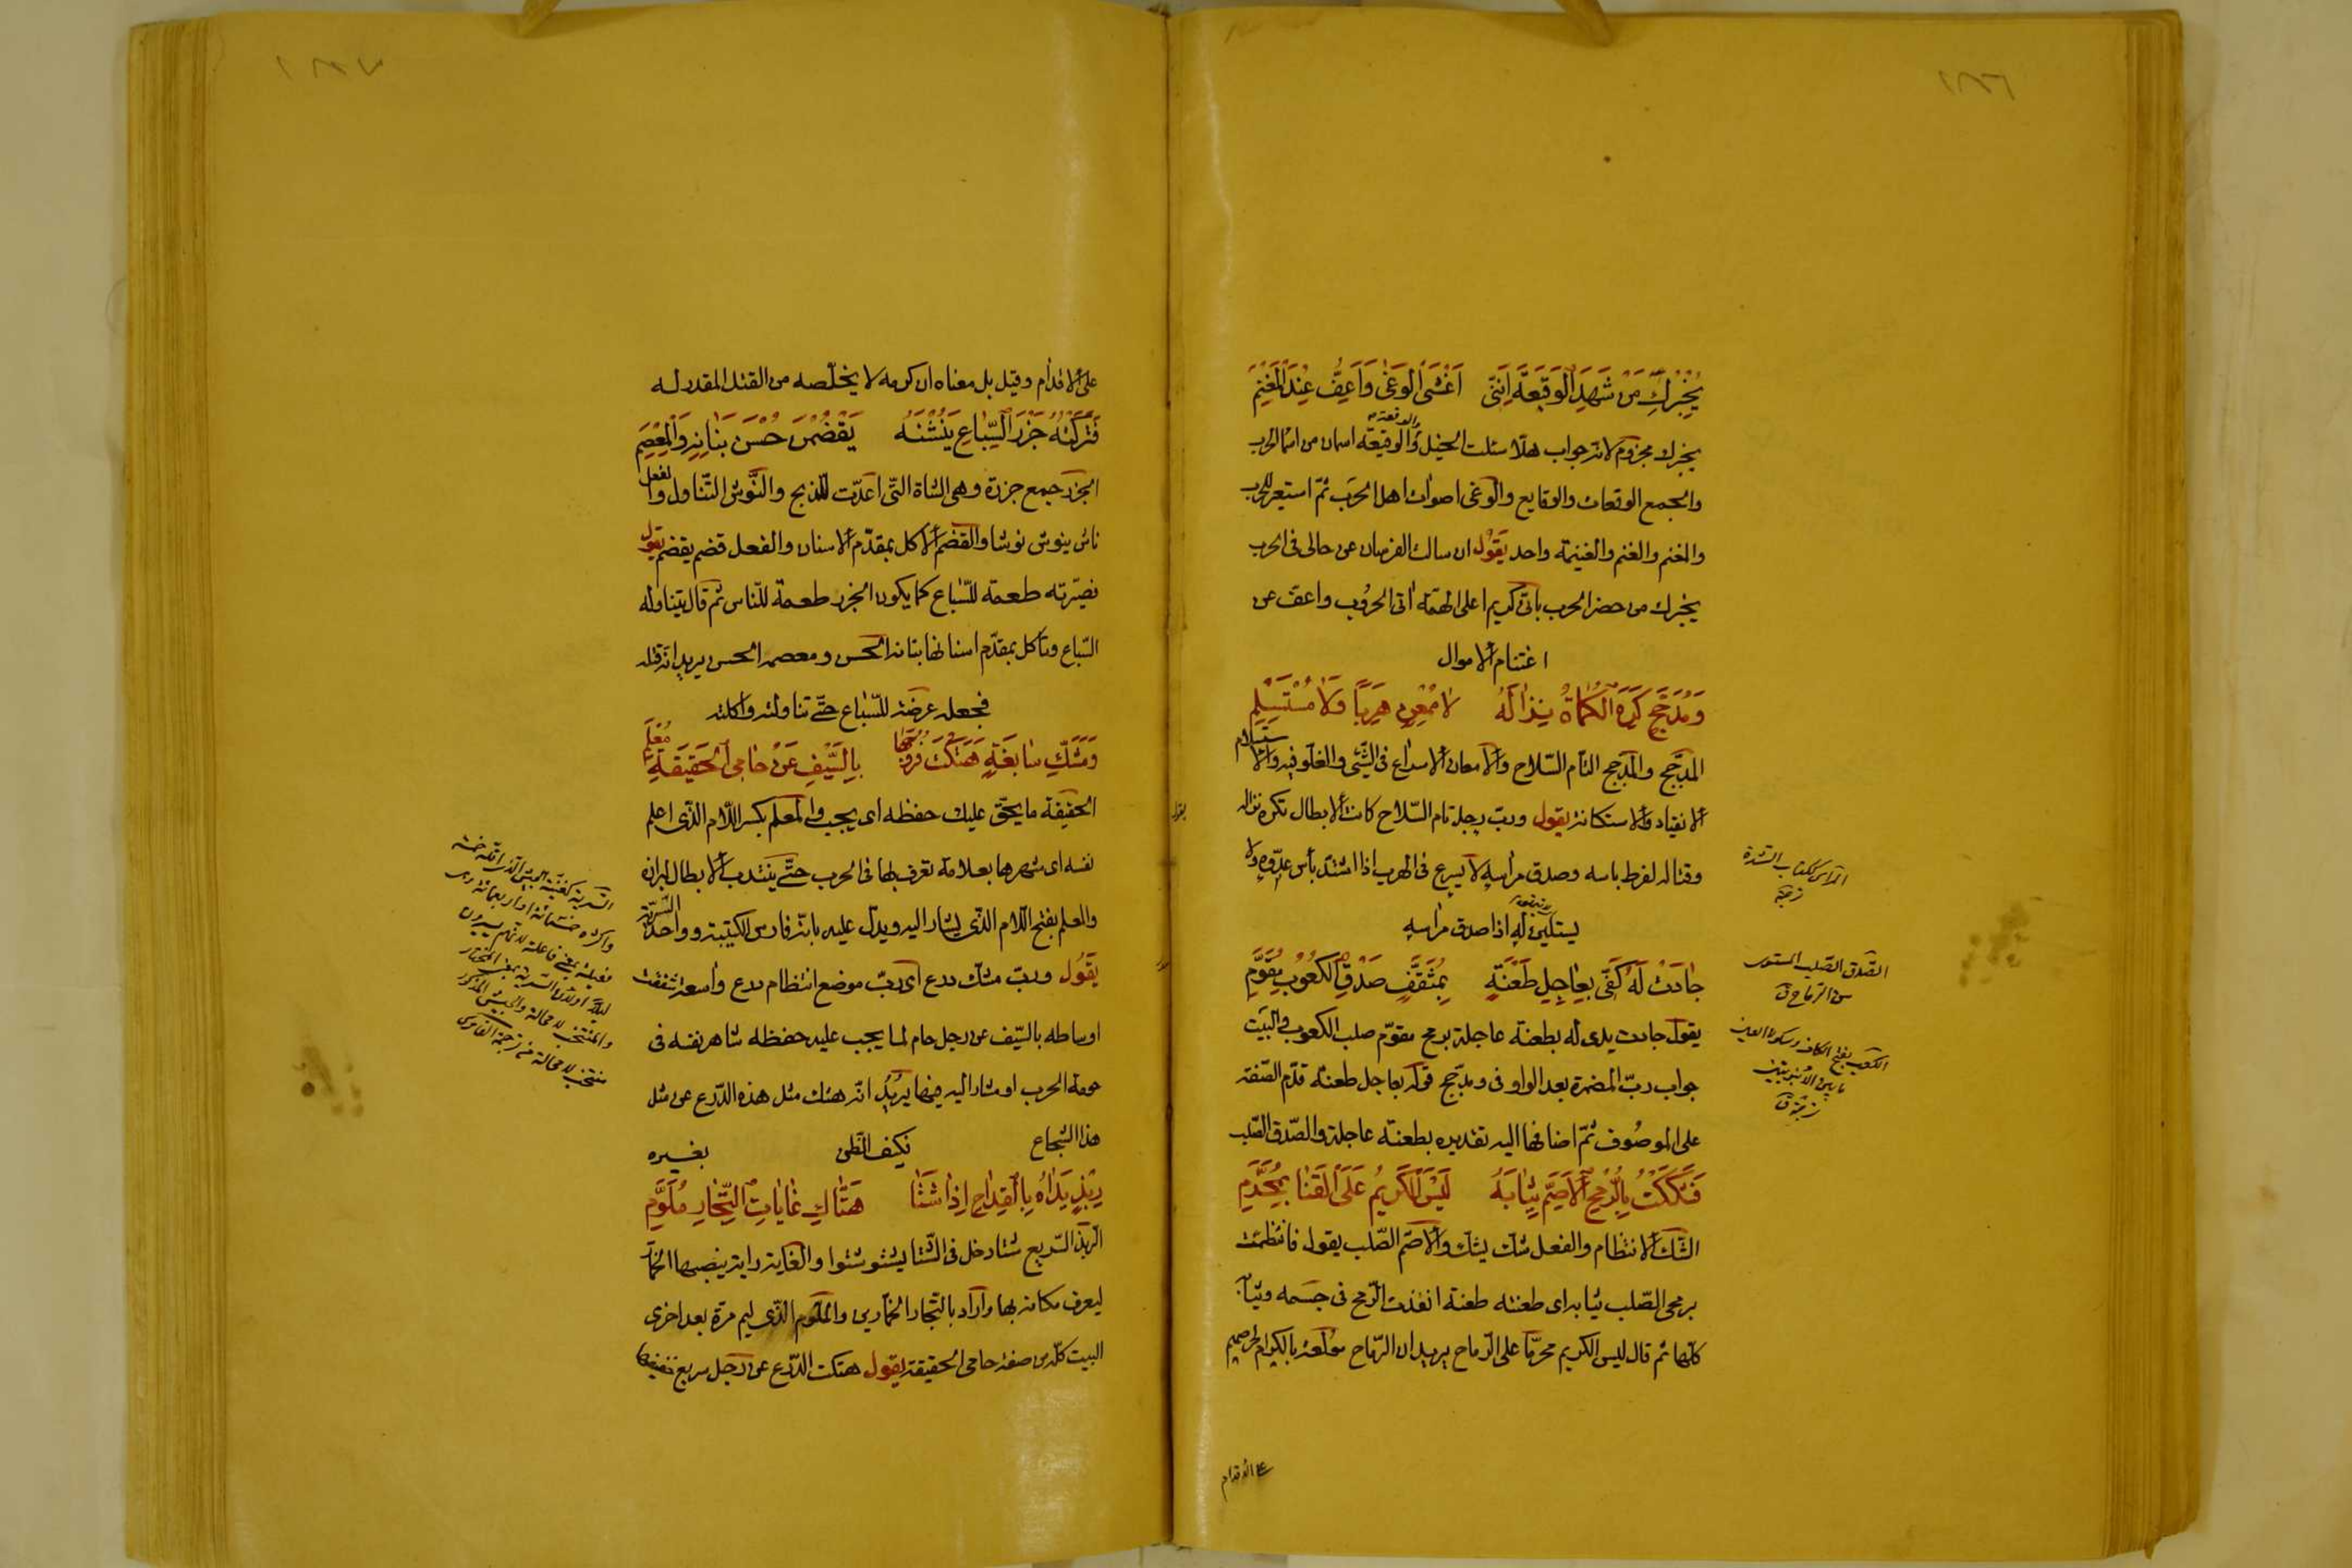 ١٨٦
يُخْبِرْكِ مَنْ شَهِدَ الْوَقِيعَةَ اَنَّنِى اَغْشَى الْوَغٰى وَاَعِفُّ عِنْدَ الْمَغْنَمِ
يخبرك مجزوم لانه جواب هلّا سئلت الخيل والوقعة والوقيعة اسمان من اسماء الحرب
والجمع الوقعات والوقايع والوغى اصوات اهل الحرب ثمّ استعير للحرب
والمغنم والغنم والغنيمة واحد يَقُوْل ان سالت الفرسان عن حالى فى الحرب
يخبرك من حضر الحرب بانّى كريم اعلى الهمّة اتى الحروب واعف عن
اغتنام الاموال
وَمُدَجَّجٍ كَرِهَ الْكُمَاةُ نِزَالَهُ لَا مُمْعِنٍ هَرَبًا وَلَا مُسْتَسْلِمِ
المدجّج والمدجج التام السّلاح والامعان الاسراع فى الشّئ والغلو فيه والاستسلام
الانقياد والاستكانة يقول وربّ رجل تام السّلاح كانت الابطال تكره نزاله
وقتاله لفرط باسه وصدق مراسه لا يسرع فى الهرب اذا اشتدّ بأس عدوّه ولا
يستكين له اذا صدق مراسه
جَادَتْ لَهُ كَفِّى بِعَاجِلِ طَعْنَةٍ بِمُثَقَّفٍ صَدْقِ الْكُعُوبِ مُقَوَّمِ
يقول جادت يدى له بطعنة عاجلة برمح مقوّم صلب الكعوب والبيت
جواب ربّ المضمرة بعد الواو فى ومدجّج قوله بعاجل طعنة قدّم الصّفة
على الموصوف ثمّ اضافها اليه تقديره بطعنة عاجلة والصّدق الصّلب
فَشَكَكْتُ بِالرُّمْحِ الْاَصَمِّ ثِيَابَهُ لَيْسَ الْكَرِيمُ عَلَى الْقَنَا بِمُحَرَّمِ
الشّك الانتظام والفعل شكّ يشك والاصمّ الصّلب يقول فانتظمت
برمحى الصّلب ثيابه اى طعنته طعنة انفذت الرّمح فى جسمه وثيابه
كلّها ثم قال ليس الكريم محرّمًا على الرّماح يريد ان الرّماح مولعة بالكرام لحرصهم
على الاقدام
المراس ككتاب الشدة
ترجمة
الصّدق الصّلب المستوى
من الرّماح ق
الكعب بفتح الكاف وسكون العين
ما بين الانبوبتين
ترجمة ق
١٨٧
على الاقدام وقيل بل معناه ان كرمه لا يخلّصه من القتل المقدر له
فَتَرَكْتُهُ جَزَرَ السِّبَاعِ يَنُشْنَهُ يَقْضُمْنَ حُسْنَ بَنَانِهِ وَالْمِعْصَمِ
الجزر جمع جزرة وهى الشاة التى اعدّت للذبح والنّوش التّناول والفعل
ناش ينوش نوشا والقضم الاكل بمقدّم الاسنان والفعل قضم يقضم يقول
فصيّرته طعمة للسّباع كما يكون الجزر طعمة للنّاس ثم قال يتناوله
السّباع وتأكل بمقدّم اسنانها بنانه الحسن ومعصمه الحسن يريد انه قتله
فجعله عرضة للسّباع حتّى تناولته واكلته
وَمَشَكِّ سَابِغَةٍ هَتَكْتُ فُرُوجَهَا بِالسَّيْفِ عَنْ حَامِى الْحَقِيقَةِ مُعْلَمِ
الحقيقة ما يحقّ عليك حفظه اى يجب والمعلم بكسر اللّام الذّى اعلم
نفسه اى شهرها بعلامة تعرف بها فى الحرب حتّى ينتدب الابطال لبرازه
والمعلم بفتح اللّام الذّى يشار اليه ويدلّ عليه بانّه فارس الكتيبة وواحد السّريّة
يَقُوْل وربّ مشك درع اى ربّ موضع انتظام درع واسعة شققت
اوساطه بالسّيف عن رجل حام لما يجب عليه حفظه شاهر نفسه فى
حومة الحرب او مشار اليه فيها يريد انّه هتك مثل هذه الدّرع عن مثل
هذا الشجاع فكيف الظن بغيره
رَبِذٍ يَدَاهُ بِالْقِدَاحِ اِذَا شَتَا هَتَّاكِ غَايَاتِ التِّجَارِ مُلَوَّمِ
الرّبذ السّريع شتا دخل فى الشّتا يشتو شتوا والغاية راية ينصبها الخمّار
ليعرف مكانه بها واراد بالتّجار الخمّارين والملوّم الذّى ليم مرّة بعد اخرى
البيت كلّه من صفة حامى الحقيقة يقول هتكت الدّرع عن رجل سريع خفيفها